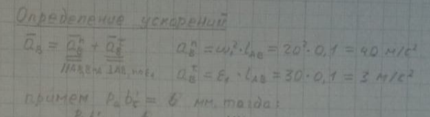 Определение ускорений
ā_B = ā_B^n + ā_B^τ   a_B^n = ω₁² · l_AB = 20² · 0,1 = 40 м/с²
a_B^τ = ε₁ · l_AB = 30 · 0,1 = 3 м/с²
примем мм, тогда: